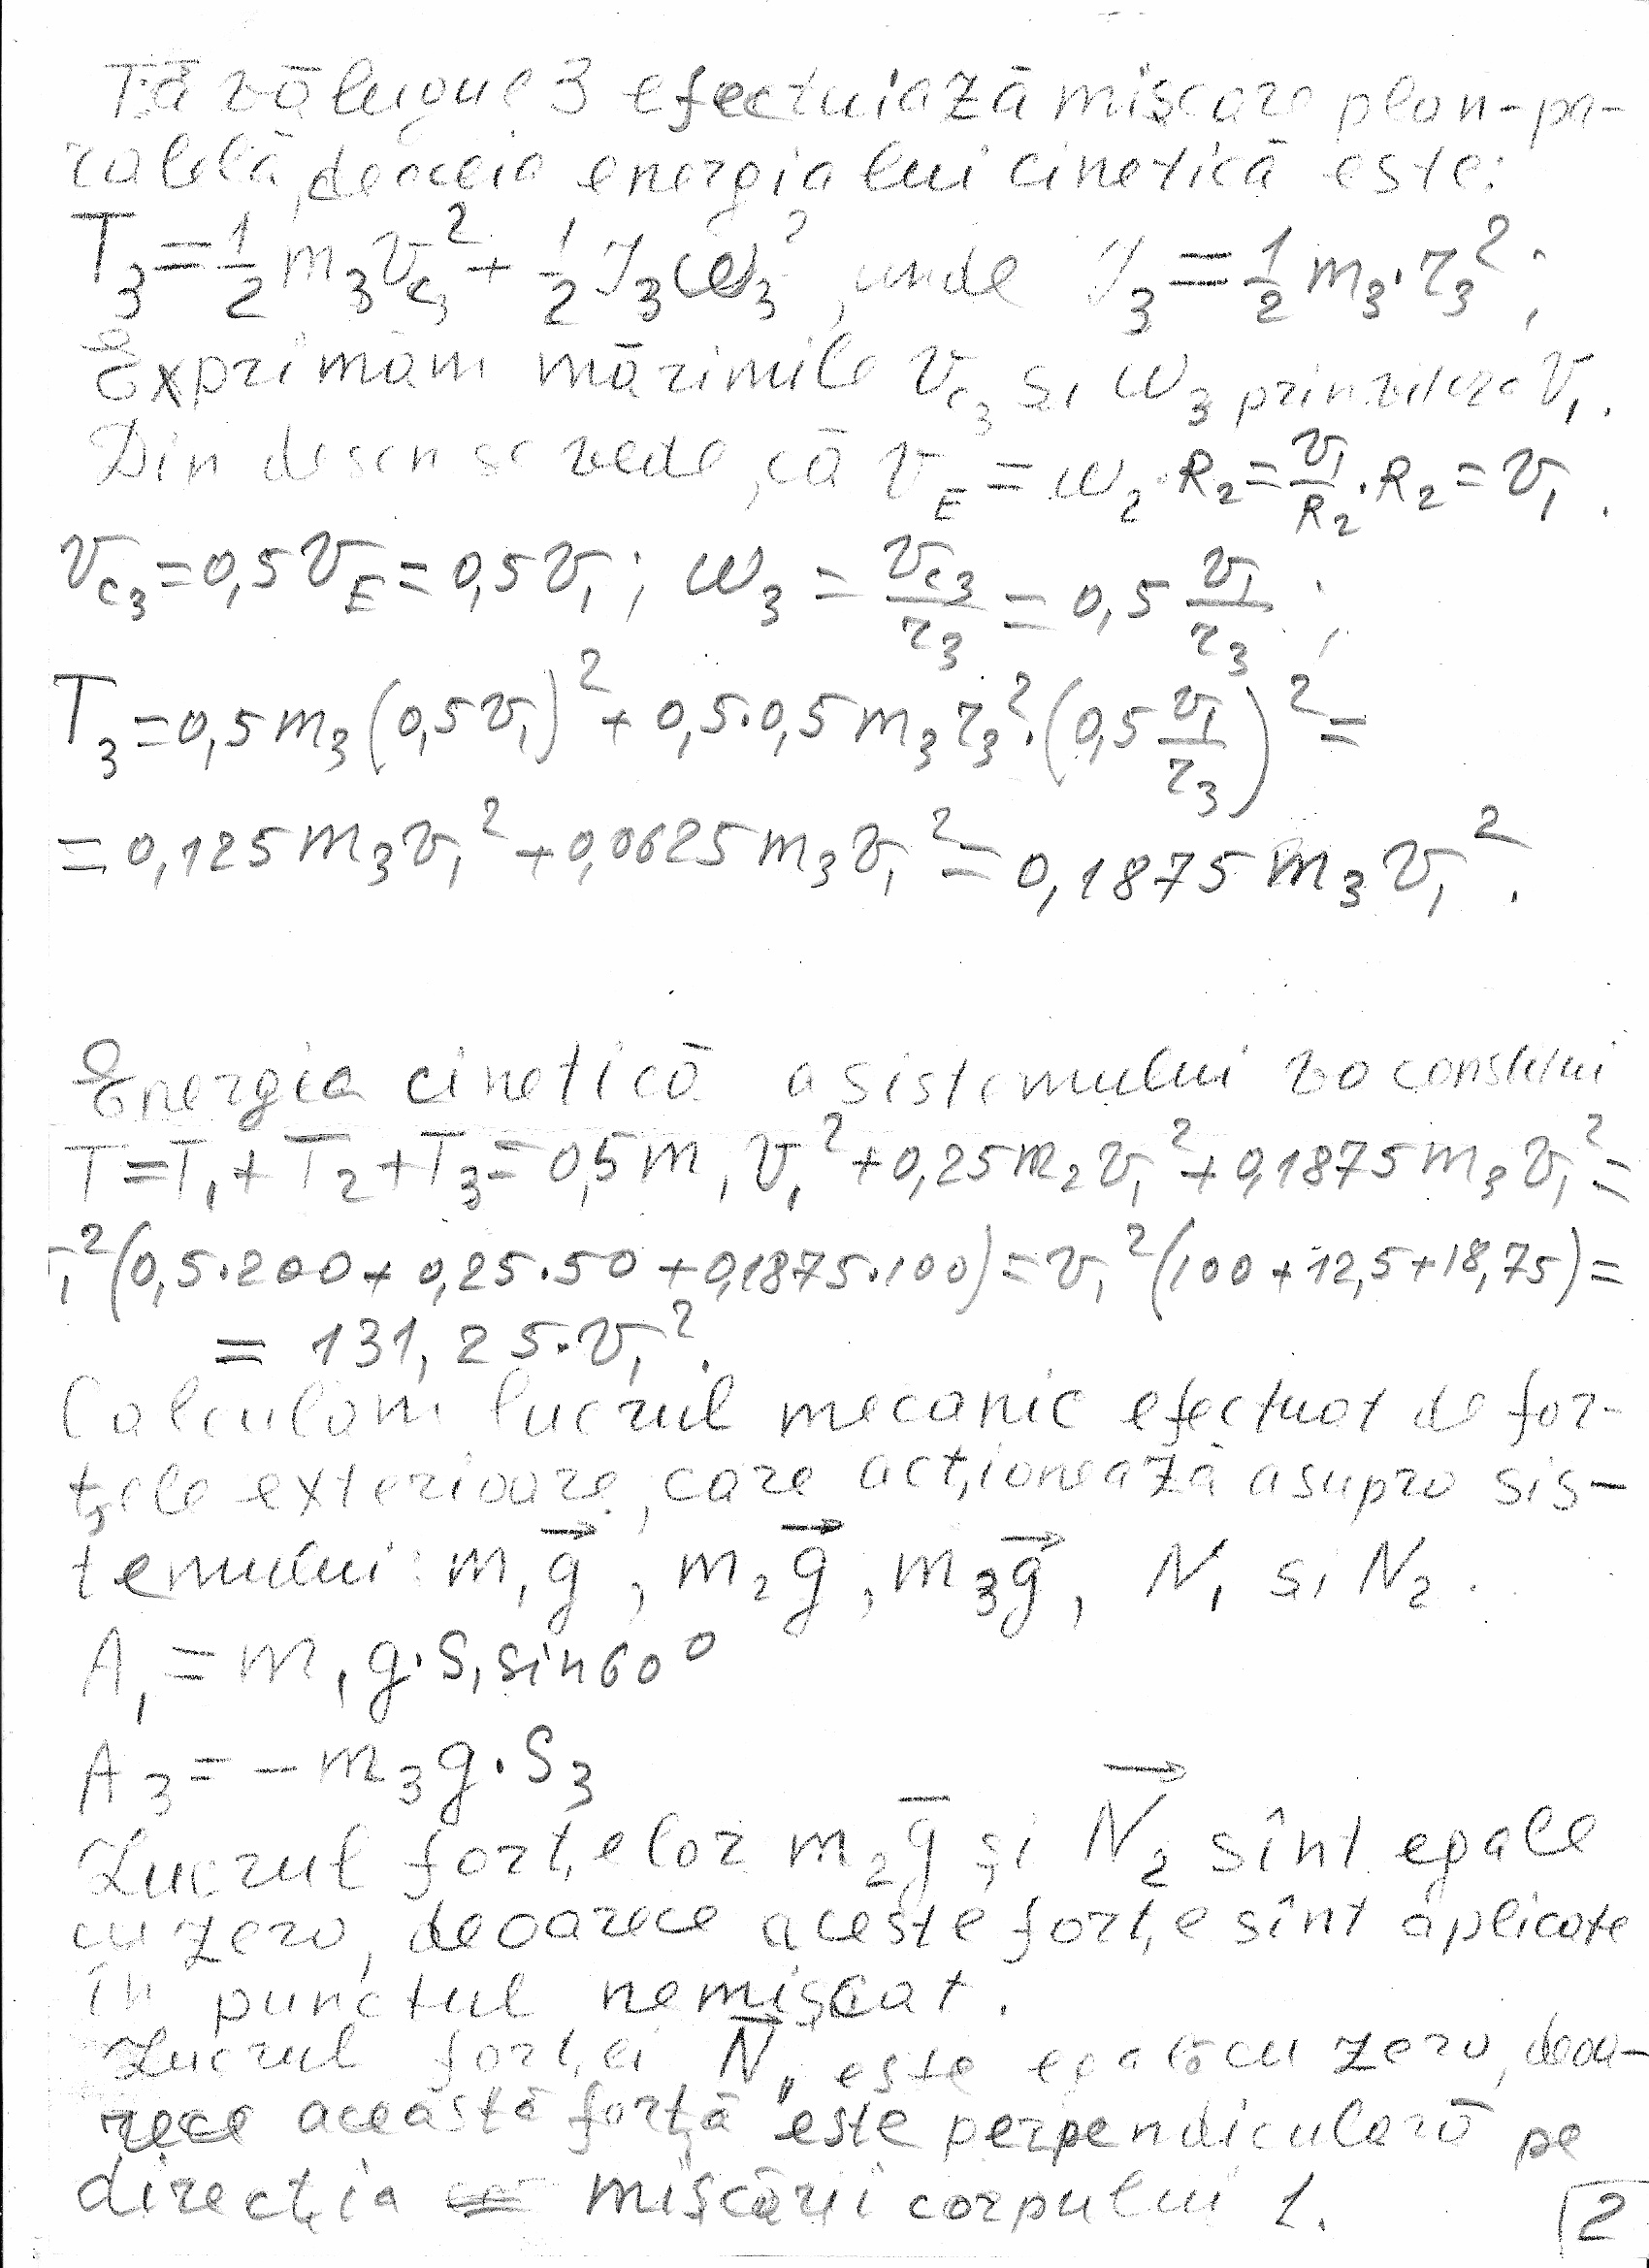 Tăvălugul 3 efectuiază mișcare plan-pa-
ralelă, deaceia energia lui cinetică este:
T₃ = 1/2 m₃ v_c₃² + 1/2 J₃ ω₃², unde J₃ = 1/2 m₃·r₃²;
Exprimăm mărimile v_c₃ și ω₃ prin viteza v₁.
Din desen se vede, că v_E = ω₂·R₂ = v₁/R₂·R₂ = v₁.
v_c₃ = 0,5 v_E = 0,5 v₁; ω₃ = v_c₃/r₃ = 0,5 v₁/r₃;
T₃ = 0,5 m₃ (0,5 v₁)² + 0,5·0,5 m₃ r₃²·(0,5 v₁/r₃)² =
= 0,125 m₃ v₁² + 0,0625 m₃ v₁² = 0,1875 m₃ v₁².
Energia cinetică a sistemului va constitui
T = T₁ + T₂ + T₃ = 0,5 m₁ v₁² + 0,25 m₂ v₁² + 0,1875 m₃ v₁² =
₁² (0,5·200 + 0,25·50 + 0,1875·100) = v₁² (100 + 12,5 + 18,75) =
= 131,25·v₁².
Calculăm lucrul mecanic efectuat de for-
țele exterioare, care acționează asupra sis-
temului: m₁g⃗, m₂g⃗, m₃g⃗, N₁ și N₂.
A₁ = m₁g·S₁ sin60°
A₃ = -m₃g·S₃
Lucrul forțelor m₂g̅ și N⃗₂ sînt egale
cu zero, deoarece aceste forțe sînt aplicate
în punctul nemișcat.
Lucrul forței N̅₁, este egală cu zero, deoa-
rece această forță este perpendiculară pe
direcția mișcării corpului 1.
2